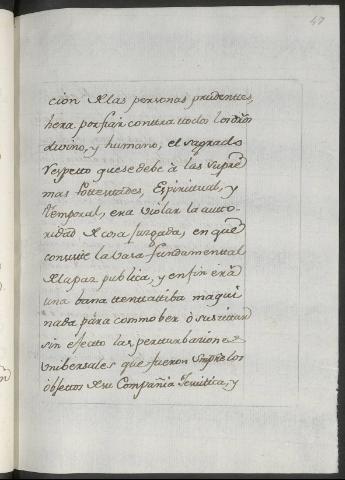 47
cion de las personas prudentes,
hera porfiar contra todo lo
divino, y humano, el sagrado
respetto que se debe à las supre
mas Pottestades, Espiritual, y
temporal, era violar la autto-
ridad de cosa juzgada, en que
consiste la vasa fundamenttal
de la paz publica, y en fin era
una bana ttenttattiba maqui
nada para commober ò suscittar
sin efecto las pertturbaciones
unibersales que fueron siempre los
objettos de su Compañia Jesuitica, y